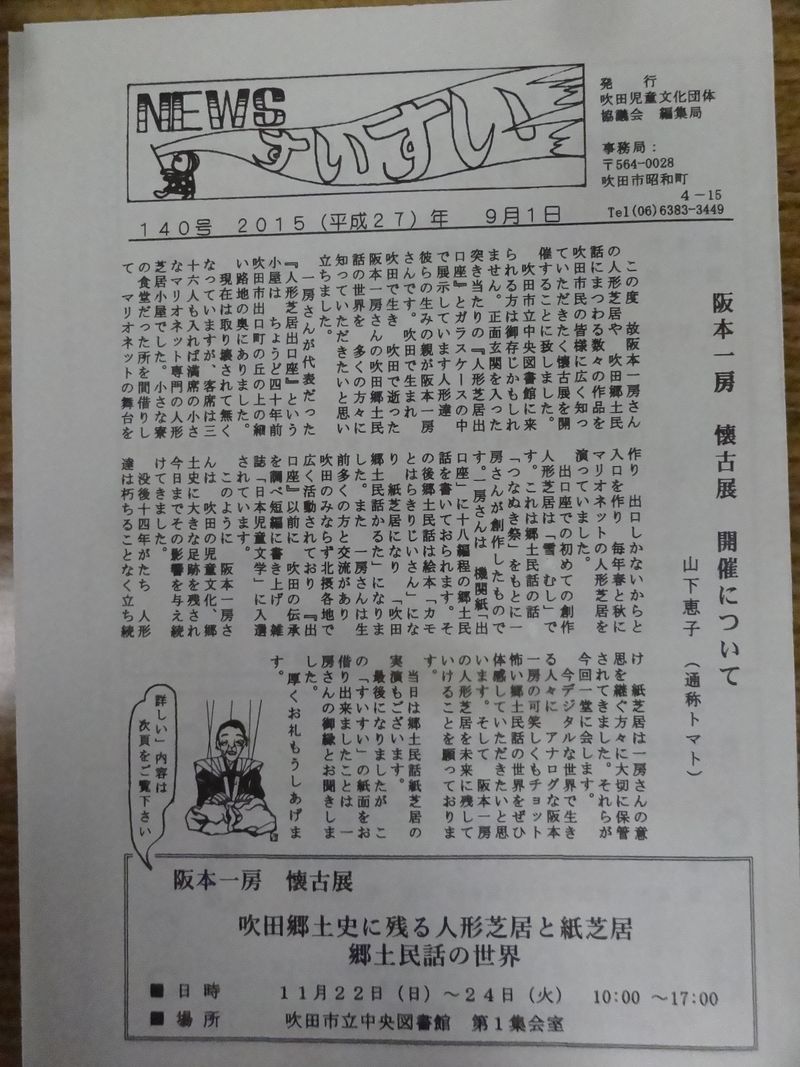 NEWS
すいすい
発　行
吹田児童文化団体
協議会　編集局
事務局：
〒564-0028
吹田市昭和町
4－15
Tel(06)6383-3449
140号　2015（平成27）年　9月1日
阪本一房　懐古展　開催について
山下恵子　（通称トマト）
この度　故阪本一房さん
の人形芝居や　吹田郷土民
話にまつわる数々の作品を
吹田市民の皆様に広く知っ
ていただきたく懐古展を開
催することに致しました。
吹田市立中央図書館に来
られる方は御存じかもしれ
ません。正面玄関を入った
突き当たりの『人形芝居出
口座』とガラスケースの中
で展示しています人形達
彼らの生みの親が阪本一房
さんです。吹田で生まれ
吹田で生き　吹田で逝った
阪本一房さんの吹田郷土民
話の世界を　多くの方々に
知っていただきたいと思い
立ちました。
一房さんが代表だった
『人形芝居出口座』という
小屋は　ちょうど四十年前
吹田市出口町の丘の上の細
い路地の奥にありました。
現在は取り壊されて無く
なっていますが、客席は三
十六人も入れば満席の小さ
なマリオネット専門の人形
芝居小屋でした。小さな寮
の食堂だった所を間借りし
て　マリオネットの舞台を
作り　出口しかないからと
入口を作り　毎年春と秋に
マリオネットの人形芝居を
演っていました。
出口座での初めての創作
人形芝居は「雪　むし」で
す。これは郷土民話の話
「つなぬき祭」をもとに一
房さんが創作したもので
す。一房さんは　機関紙「出
口座」に十八編程の郷土民
話を書いておられます。そ
の後郷土民話は絵本「カモ
とはらきりじいさん」にな
り　紙芝居になり　「吹田
郷土民話かるた」になりま
した。また　一房さんは生
前多くの方と交流があり
吹田のみならず北摂各地で
広く活動されており　『出
口座』以前に　吹田の伝承
を調べ短編に書き上げ　雑
誌「日本児童文学」に入選
されています。
このように　阪本一房さ
んは　吹田の児童文化、郷
土史に大きな足跡を残され
今日までその影響を与え続
けてきました。
没後十四年がたち　人形
達は朽ちることなく立ち続
け　紙芝居は一房さんの意
思を継ぐ方々に大切に保管
されてきました。それらが
今回一堂に会します。
今デジタルな世界で生き
る人々に　アナログな阪本
一房の可笑しくもチョット
怖い郷土民話の世界をぜひ
体感していただきたいと思
います。そして　阪本一房
の人形芝居を未来に残して
いけることを願っておりま
す。
当日は郷土民話紙芝居の
実演もございます。
最後になりましたが　こ
の「すいすい」の紙面をお
借り出来ましたことは　一
房さんの御縁とお聞きしま
した。
厚くお礼もうしあげま
す。
詳しい」内容は
次頁をご覧下さい
阪本一房　懐古展
吹田郷土史に残る人形芝居と紙芝居
郷土民話の世界
■ 日　時　11月22日（日）～24日（火）　10:00 ～17:00
■ 場　所　吹田市立中央図書館　第1集会室